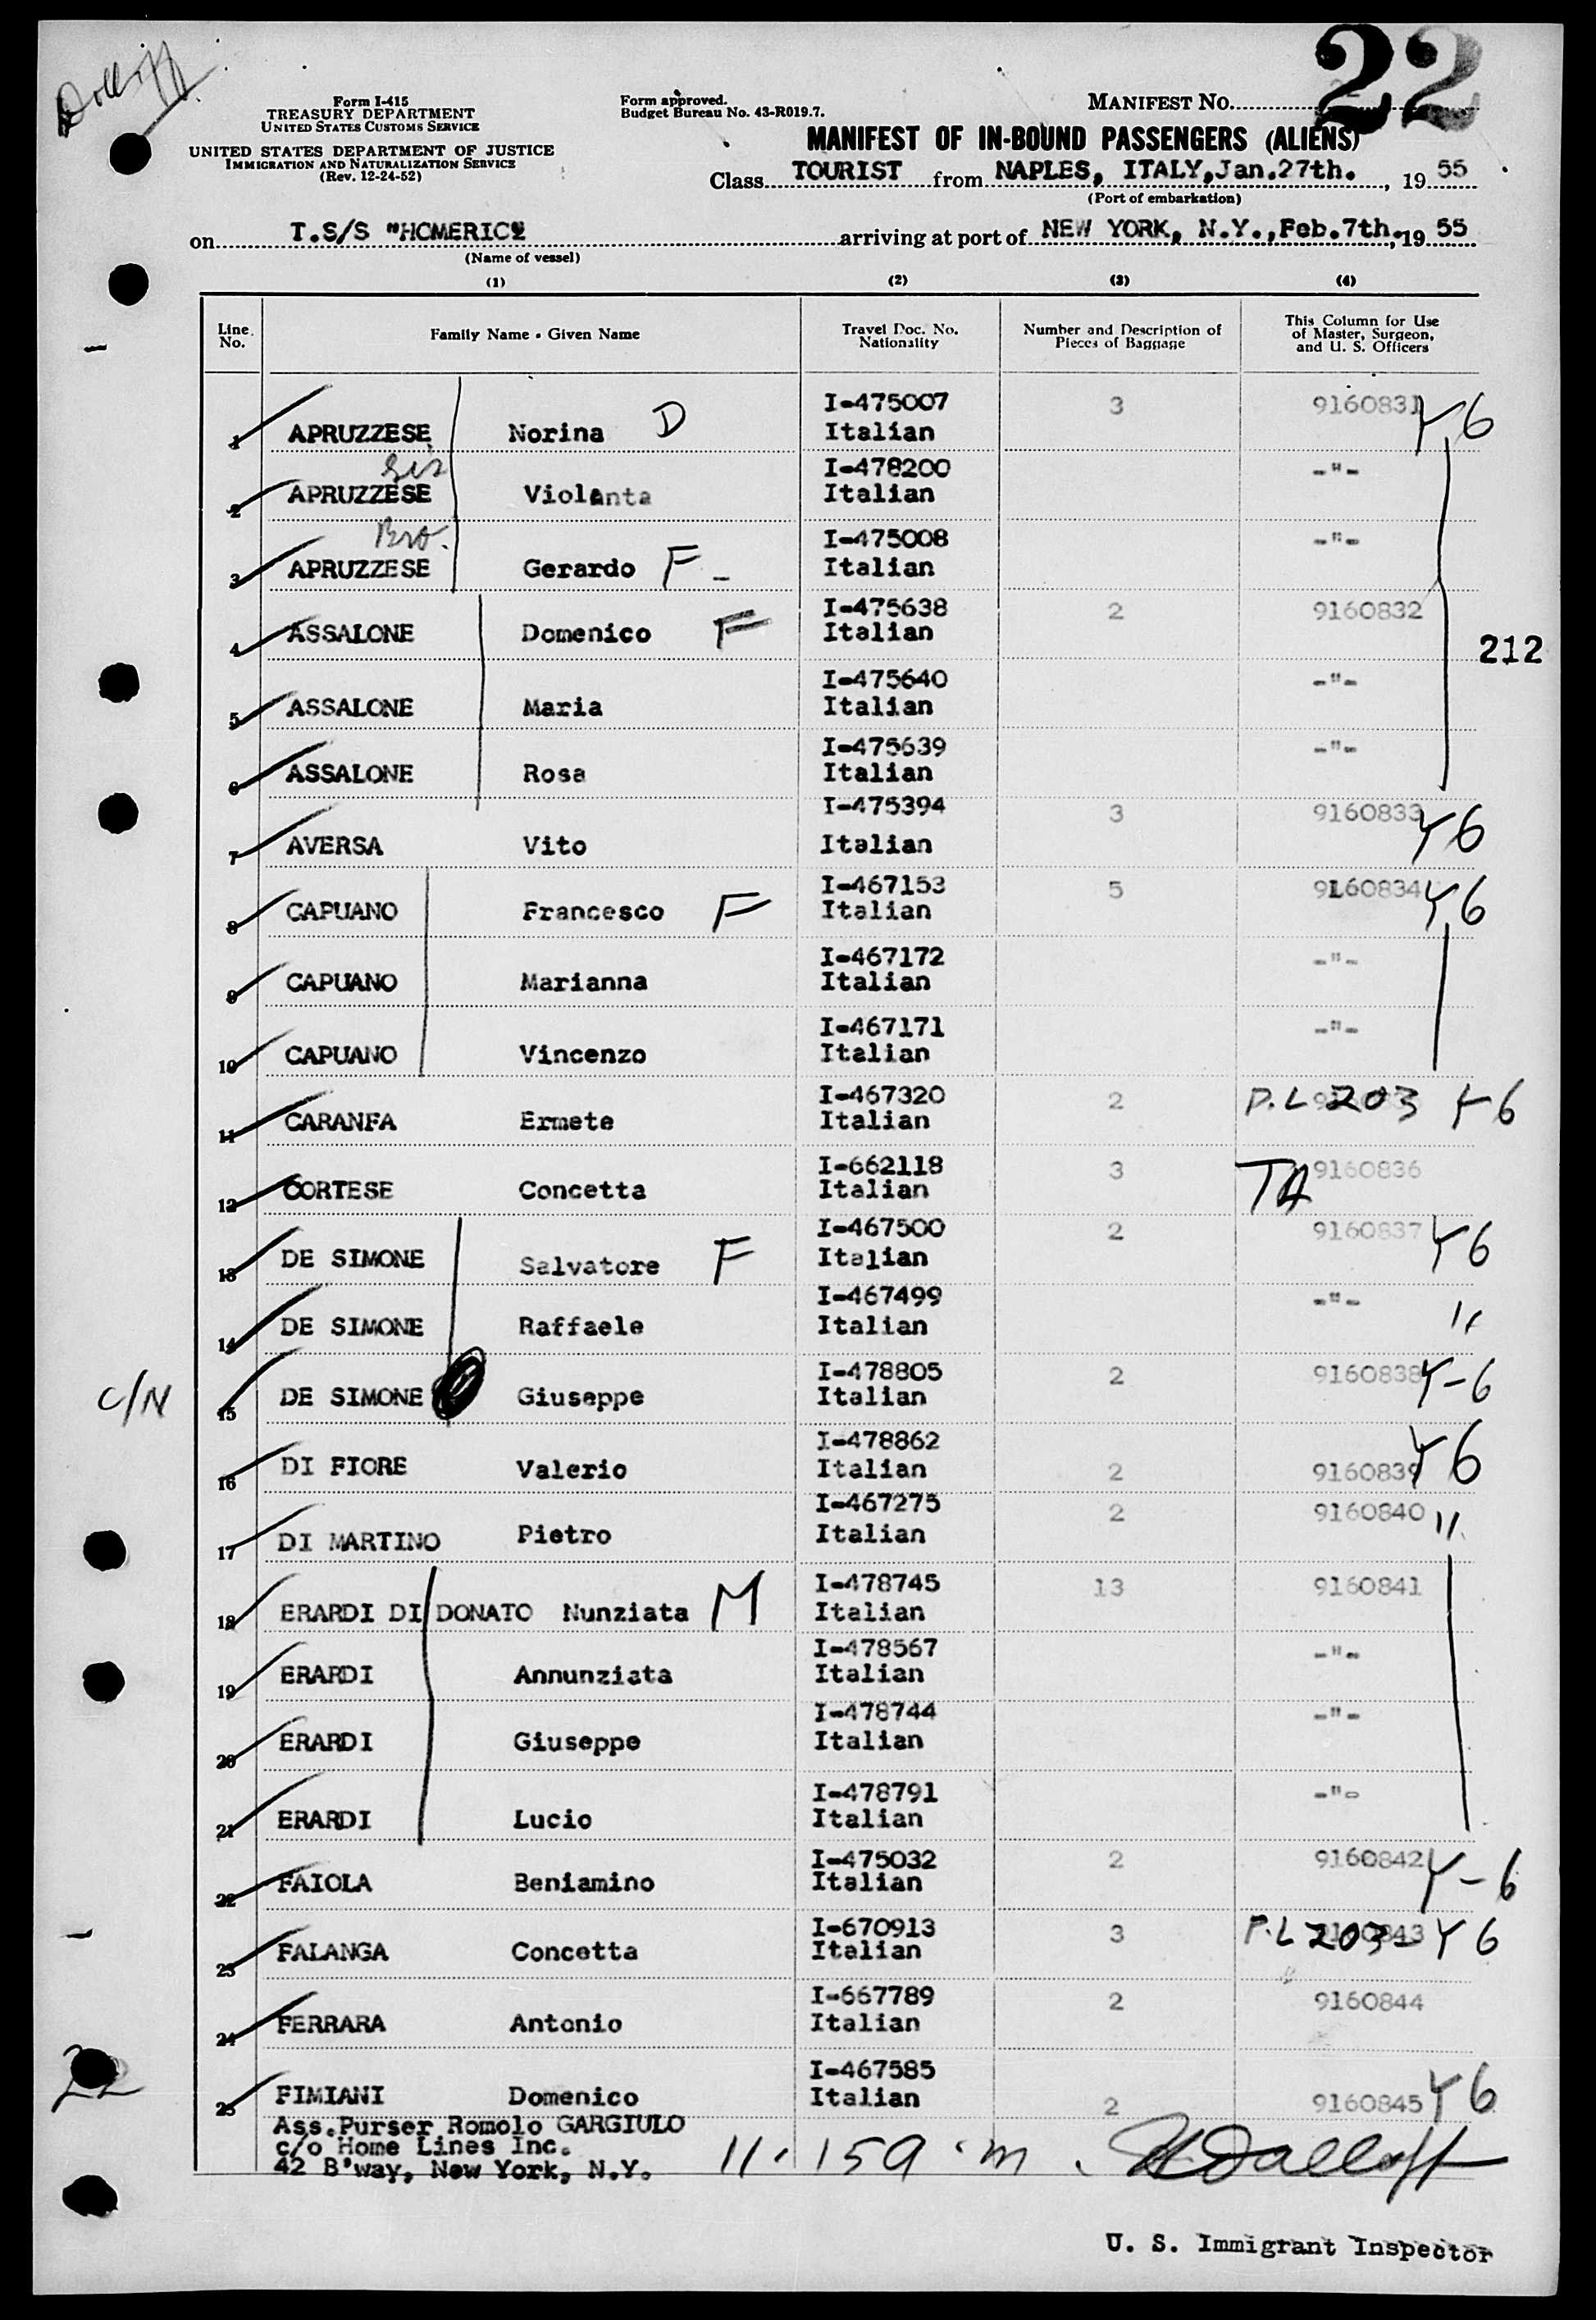 22
Form I-415
TREASURY DEPARTMENT
UNITED STATES CUSTOMS SERVICE
UNITED STATES DEPARTMENT OF JUSTICE
IMMIGRATION AND NATURALIZATION SERVICE
(Rev. 12-24-52)
Form approved.
Budget Bureau No. 43-R019.7.
MANIFEST NO.
MANIFEST OF IN-BOUND PASSENGERS (ALIENS)
Class TOURIST from NAPLES, ITALY, Jan.27th. , 19 55
(Port of embarkation)
on T.S/S "HOMERIC" arriving at port of NEW YORK, N.Y., Feb.7th. , 19 55
(Name of vessel)
(1) (2) (3) (4)
Line No. Family Name - Given Name Travel Doc. No. Nationality Number and Description of Pieces of Baggage This Column for Use of Master, Surgeon, and U. S. Officers
1 APRUZZESE Norina D I-475007 Italian 3 9160831 Y6
Sis
2 APRUZZESE Violanta I-478200 Italian -"-
Bro.
3 APRUZZESE Gerardo F - I-475008 Italian -"-
4 ASSALONE Domenico F I-475638 Italian 2 9160832
212
5 ASSALONE Maria I-475640 Italian -"-
6 ASSALONE Rosa I-475639 Italian -"-
7 AVERSA Vito I-475394 Italian 3 9160833 Y6
8 CAPUANO Francesco F I-467153 Italian 5 9160834 Y6
9 CAPUANO Marianna I-467172 Italian -"-
10 CAPUANO Vincenzo I-467171 Italian -"-
11 CARANFA Ermete I-467320 Italian 2 P.L 203 Y-6
12 CORTESE Concetta I-662118 Italian 3 TA 9160836
13 DE SIMONE Salvatore F I-467500 Italian 2 9160837 Y6
14 DE SIMONE Raffaele I-467499 Italian -"- "
C/N 15 DE SIMONE Giuseppe I-478805 Italian 2 9160838 Y-6
16 DI FIORE Valerio I-478862 Italian 2 9160839 Y6
17 DI MARTINO Pietro I-467275 Italian 2 9160840 "
18 ERARDI DI DONATO Nunziata M I-478745 Italian 13 9160841
19 ERARDI Annunziata I-478567 Italian -"-
20 ERARDI Giuseppe I-478744 Italian -"-
21 ERARDI Lucio I-478791 Italian -"-
22 FAIOLA Beniamino I-475032 Italian 2 9160842 Y-6
23 FALANGA Concetta I-670913 Italian 3 P.L 203- Y6
24 FERRARA Antonio I-667789 Italian 2 9160844
25 FIMIANI Domenico I-467585 Italian 2 9160845 Y6
22
Ass.Purser Romolo GARGIULO
c/o Home Lines Inc.
42 B'way, New York, N.Y.
U. S. Immigrant Inspector